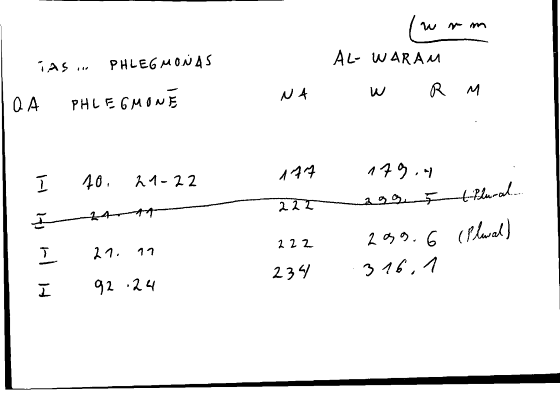 (w r m
TAS... PHLEGMONAS AL-WARAM
QA PHLEGMONĒ NA W R M
I 10. 21-22 177 179.4
I 21. 11 222 299. 5 (Plural
I 21. 11 222 299. 6 (Plural)
I 92.24 234 316.1